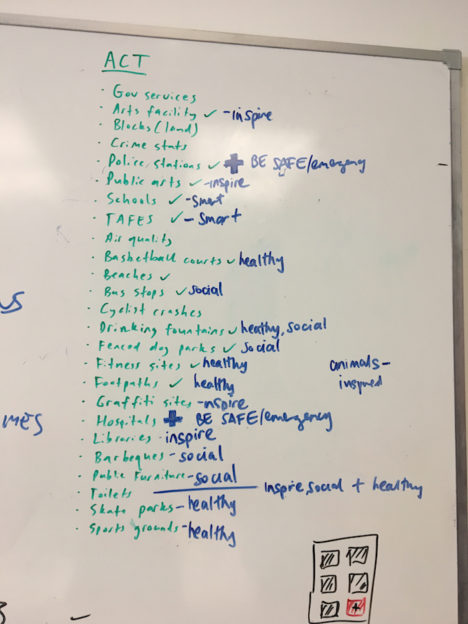 ACT
· Gov services
· Arts facility ✓ -inspire
· Blocks (land)
· Crime stats
· Police stations ✓ + BE SAFE/emergency
· Public arts ✓ -inspire
· Schools ✓ -smart
· TAFES ✓ - smart
· Air quality
· Basketball courts ✓ healthy
· Beaches ✓
· Bus stops ✓ social
· Cyclist crashes
· Drinking fountains ✓ healthy, social
· Fenced dog parks ✓ social
· Fitness sites ✓ healthy
animals-
inspired
· Footpaths ✓ healthy
· Graffiti sites -inspire
· Hospitals + BE SAFE/emergency
· Libraries - inspire
· Barbeques - social
· Public Furniture - social
· Toilets inspire, social + healthy
· Skate parks - healthy
· Sports grounds - healthy
MES